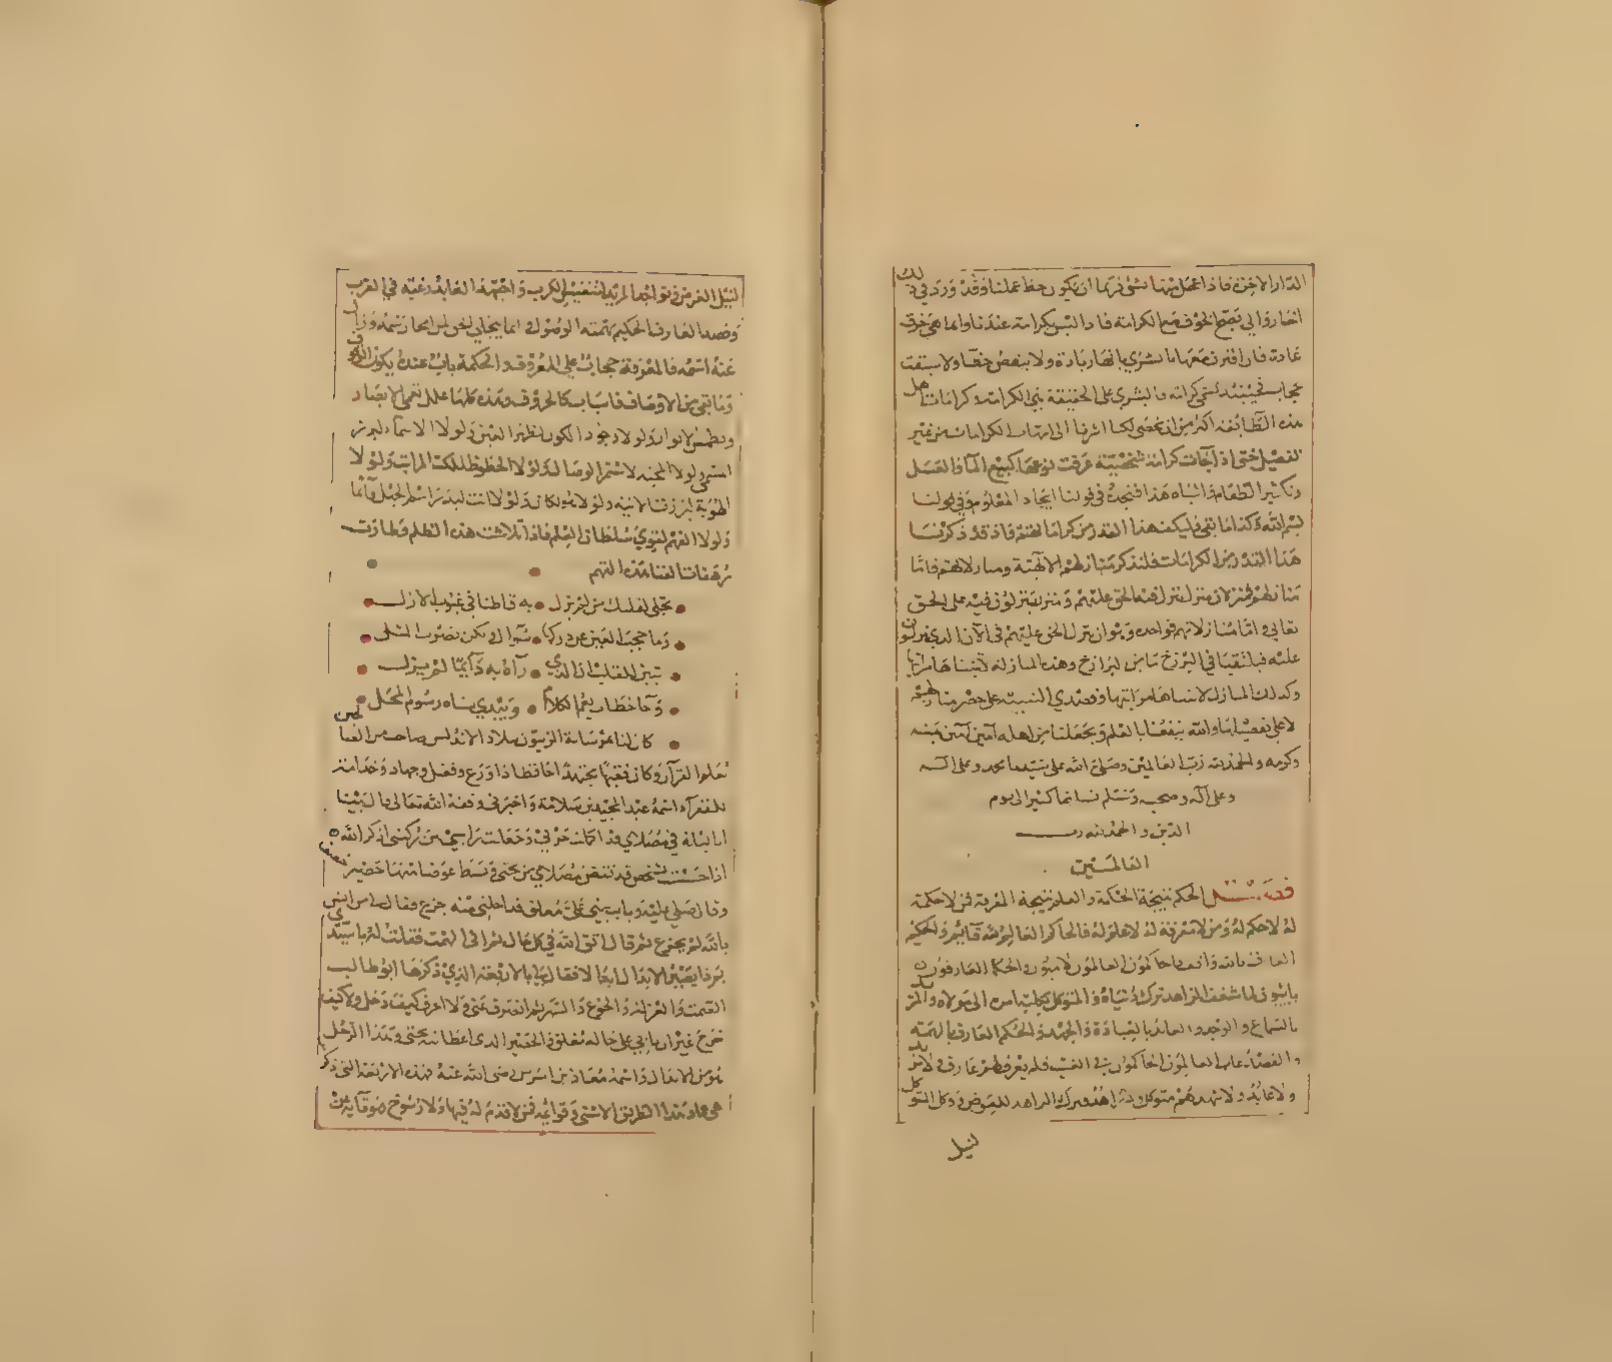 الدار الاخرة فاذا عجل منها بشئ فربما ان يكون حظ عملنا وقد ورد في ذلك
اخبار والى تصح الخوف مع الكرامة فاذا ليس بكرامة عندنا وانما هى خرق
عادة فان اقترن معها بالبشرى بانها زيادة ولا ينقص حظا ولا سيقت
حجاب فحينئذ تسمى كرامة فالبشرى على الحقيقة هي الكرامة وكرامات اهل
هذه الطائفة اكثر من ان تحصى لكنا اشرنا الى امهات الكرامات من غير
تفصيل حتى اذا جات كرامة شخصية عرفت نوعها كنبع الما والعسل
وتكثير الطعام واشباه هذا فتجده في قولنا ايجاد المعلوم وفي قولنا
بسم الله وكذا ما بقي فليكف هذا القدر من كراماتهم فاذ قد ذكرنا
هذا القدر من الكرامات فلنذكر منازلهم الالهية ومنازلاتهم فاما
منازلهم فهو لان منزل تنزل فيه الحق عليهم ومنزل ينزلون فيه على الحق
تعالى واما منازلاتهم فواحدة وهو ان ينزل الحق عليهم في الآن الذي ينزلون
عليه فيلتقيا في البرزخ ما من البرازخ وهذه المنازلة لا يتناها مراتبها
وكذلك المنازل لا يتناها مراتبها وقصدي التنبيه على حضر مناهجهم
لا على تفصيلها والله ينفعنا بالعلم ويجعلنا من اهله امين امين بمنه
وكرمه والحمد لله رب العالمين وصلى الله على سيدنا محمد وعلى آله
وعلى آله وصحبه وسلم تسليما كثيرا الى يوم
الدين والحمد لله رب
العالمين
فصل الحكم نتيجة الحكمة والعلم نتيجة المعرفة فمن لا حكمة
له لا حكم له ومن لا معرفة له لا علم له فالحاكم العالم لله قائم والحكيم
العارف بالله واقف فالحاكمون العالمون لاميون والحكما العارفون
بائيون لما شغف الزاهد بترك دنياه والمتوكل بكليته الى مولاه والمريد
بالسماع والوجد والعابد بالعبادة والجهد والحكيم العارف بالهمة
والقصد غاب العالمون الحاكمون في الغيب فلم يعرفهم عارف ولا مريد
ولا عابد ولا شهدهم متوكل ولا زاهد فترك الزاهد للعوض وتوكل المتوكل
لنيل
لنيل الغرض وتواجد المريد لتنفيس الكرب واجتهد العابد رغبة في القرب
وقصد العارف الحكيم بهمته الوصول وانما يتجلى الحق لمن امحا رسمه وزال
عنه اسمه فالمعرفة حجاب على المعروف والحكمة باب عنده يكون الوقوف
وما بقي من الاوصاف فاسباب كالحروف وهذه كلها علل تعمي الابصار
وتطمس الانوار ولولا وجود الكون لظهر العين ولولا الاسماء لبرز
المسمى ولولا المحبة لاستمر الوصال ولولا الحظوظ لملكت المراتب ولولا
الهوية لبرزت الانية ولولا هو لكان ولولا انت لبدا رسم الجهل قائما
ولولا الفهم لقوي سلطان العلم فاذا تلاشت هذه الظلم وطارت
بمرهفات الفنا هذه التهم
تجلى لقلبك من لم يزل به قاطنا في غيوب الازل
وما حجب العين عن دركها سواك ولكن بضرب المثل
تبين للقلب ان الذي رآه به دائما لم يزل
وجا خطاب يعم الكلام ويبدي سناه رسوم المحل
كان لنا بمرشانة الزيتون ببلاد الاندلس صاحب من الصالحين
يعلم القرآن وكان فقيها مجتهدا حافظا ذا ورع وفضل وجهاد وخدامة
للفقراء اسمه عبد المجيد بن سلامة واخبرني وفقه الله تعالى قال بينا
انا ليلة في مصلاي قد اكملت حزبي وجعلت راسي بين ركبتي اذكر الله
اذ احسست بشخص قد نفض مصلاي من تحتي وبسط عوضا منها حصير خصيف
وقال صلي عليه وباب بيتي على مغلق فداخلني منه جزع فقال لي من ياتنس
بالله لم يجزع ثم قال اتق الله في كل حال ثم الهمت فقلت له يا سيدي
بم ذا يصير الابدال ابدالا فقال لي بالاربعة الذي ذكرها ابو طالب
الصمت والعزلة والجوع والسهر ثم انصرف عني ولا اعرف كيف دخل ولا كيف
خرج غير ان بابي على حاله مغلق والحصير الذي اعطانيه تحتي وهذا الرجل
هو من الابدال واسمه معاذ بن اشرس رضي الله عنه فهذه الاربعة التي ذكر
هي عماد هذا الطريق الاسنى وقوائمه فمن لا قدم له فيها ولا رسوخ هو قائه من